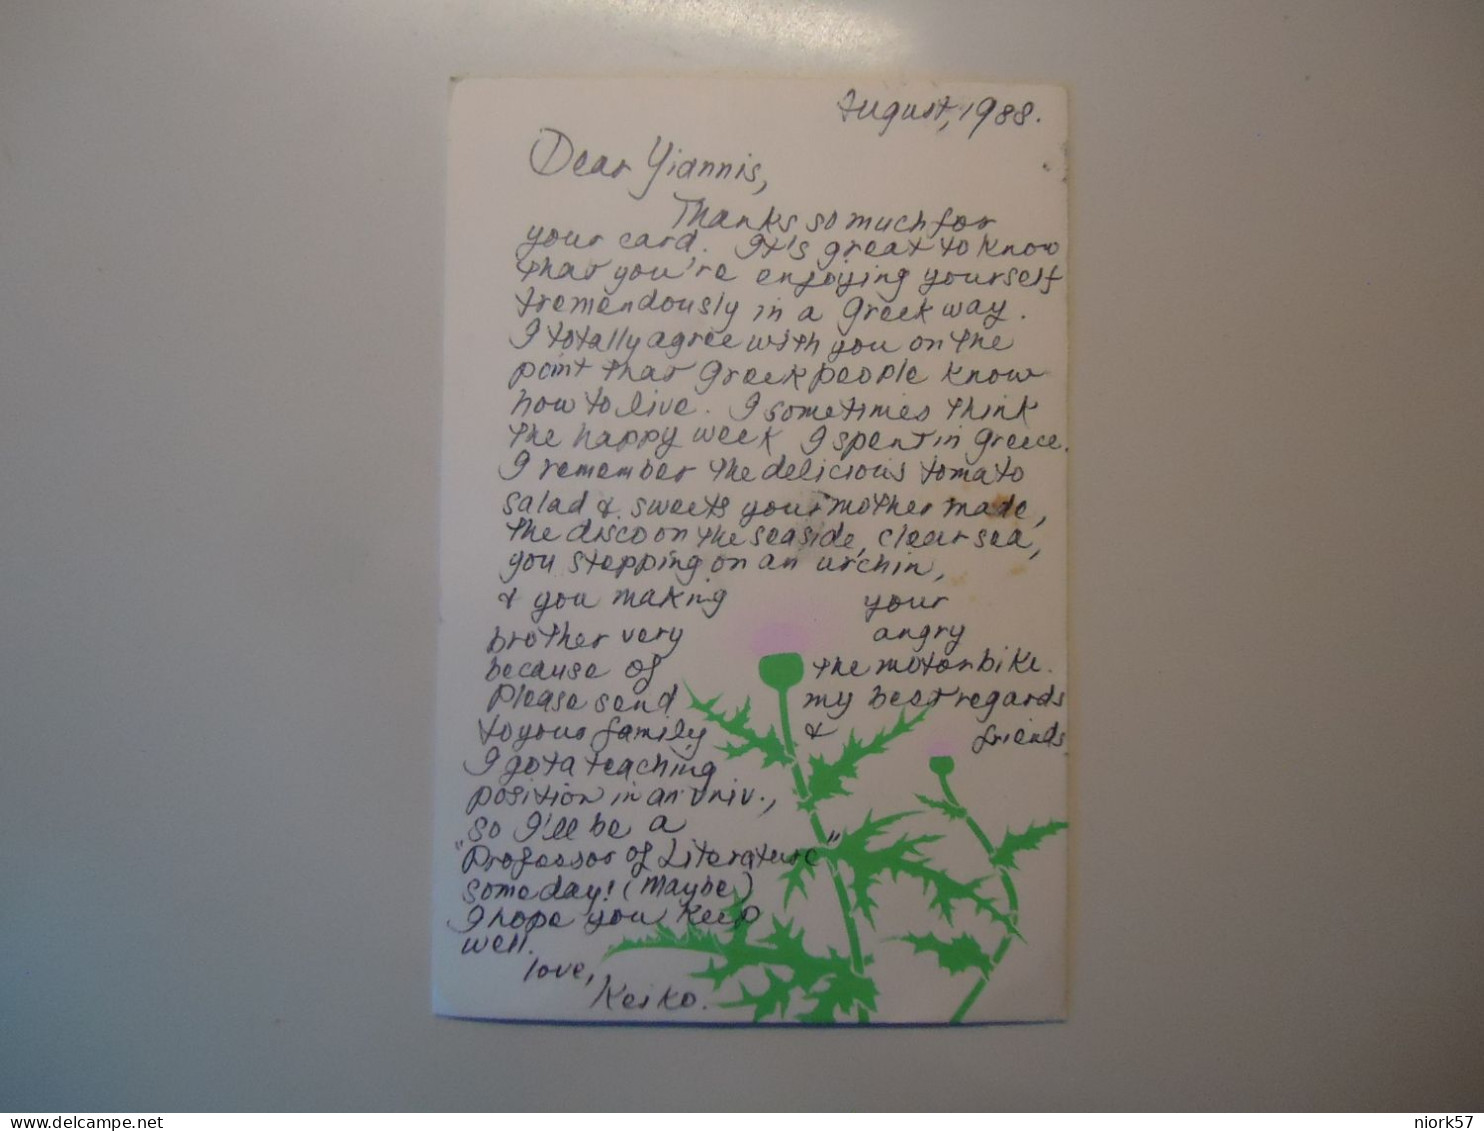 August, 1988.
Dear Yiannis,
Thanks so much for
your card. It's great to know
that you're enjoying yourself
tremendously in a Greek way.
I totally agree with you on the
point that Greek people know
how to live. I sometimes think
the happy week I spent in Greece.
I remember the delicious tomato
salad & sweets your mother made,
the disco on the seaside, clear sea,
you stepping on an urchin,
& you making your
brother very angry
because of the motorbike.
Please send my best regards
to your family & friends
I got a teaching
position in an univ.,
so I'll be a
"Professor of Literature"
someday! (Maybe)
I hope you keep
well.
love,
Keiko.
delcampe.net
niork57